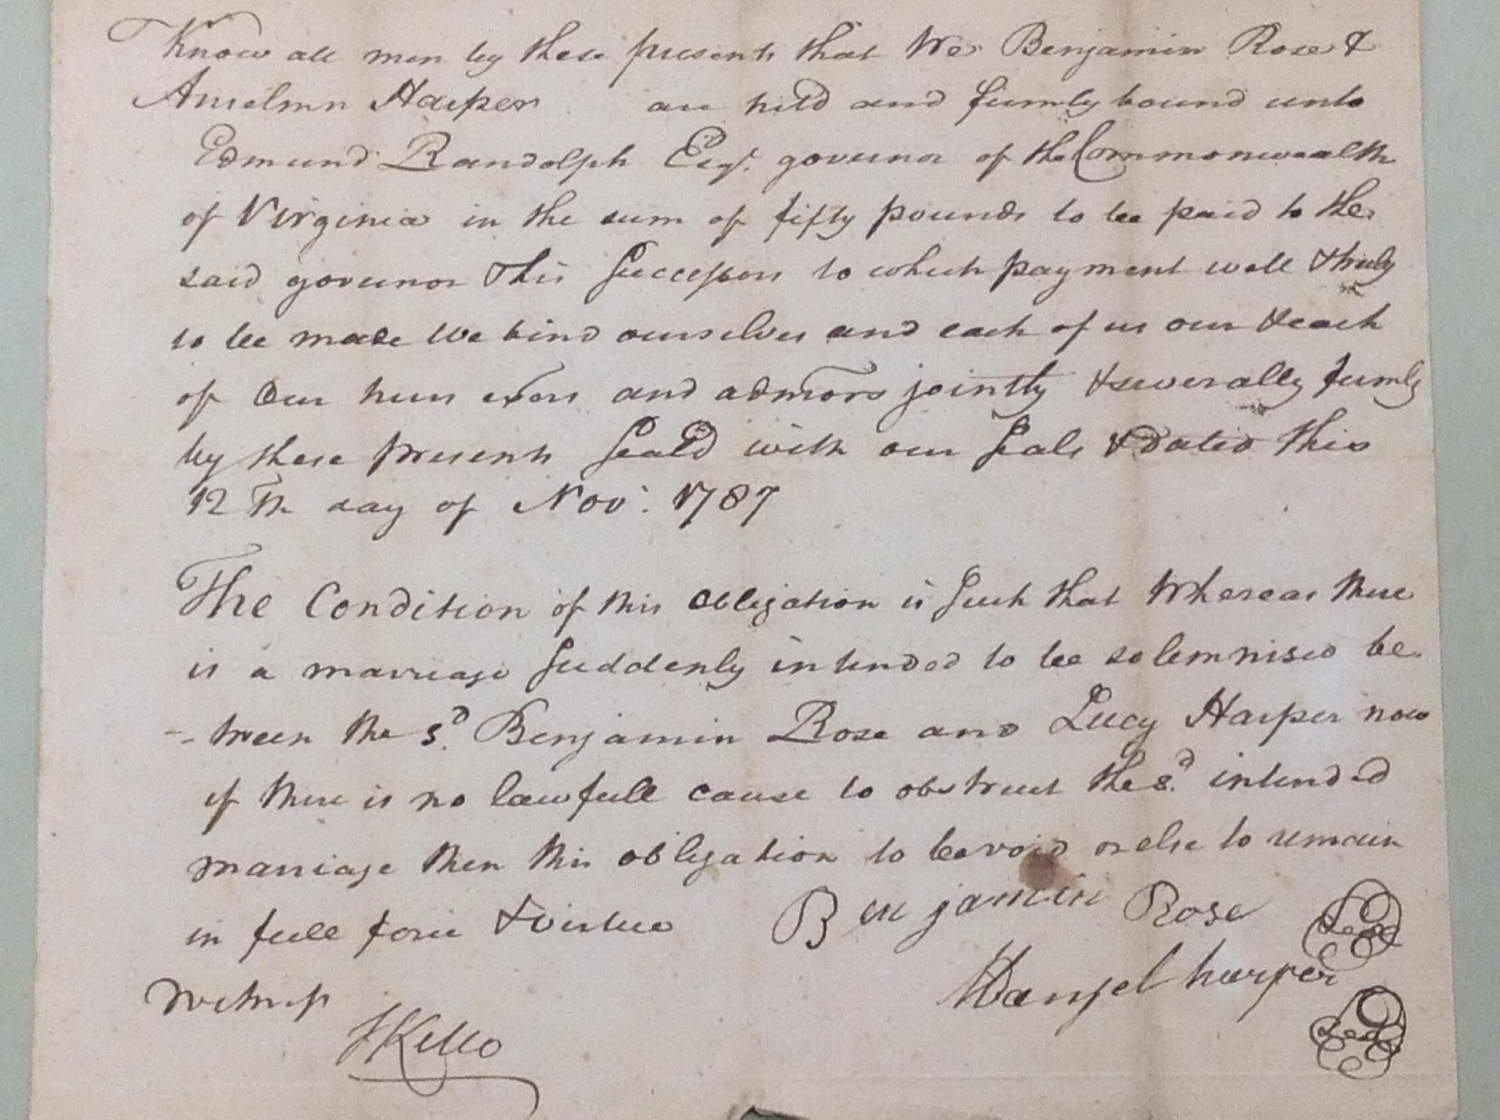 Know all men by these presents that We Benjamin Rose &
Anselmn Harper are held and firmly bound unto
Edmund Randolph Esqr. governor of the Commonwealth
of Virginia in the sum of fifty pounds to be paid to the
said governor & his Successors to which payment well & truly
to be made We bind ourselves and each of us our & each
of Our heirs exors and admors jointly & severally firmly
by these presents Seald with our Seals & dated this
12 Th day of Nov: 1787
The Condition of this obligation is Such that Whereas there
is a marriage Suddenly intended to be solemnised be
- tween the sd. Benjamin Rose and Lucy Harper now
if there is no lawfull cause to obstruct the sd. intended
marriage then this obligation to be void or else to remain
in full force & virtue Benjamin Rose Seal
harper Seal
Witness
SKello